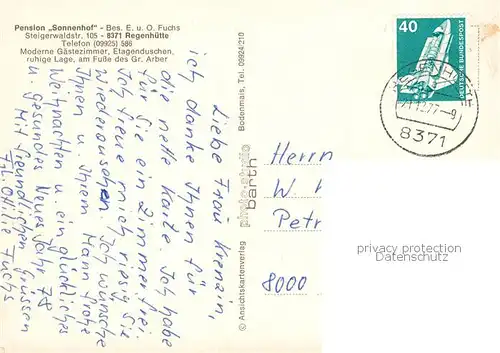 Pension „Sonnenhof" - Bes. E. u. O. Fuchs
Steigerwaldstr. 105 - 8371 Regenhütte
Telefon (09925) 586
Moderne Gästezimmer, Etagenduschen,
ruhige Lage, am Fuße des Gr. Arber
Liebe Frau
ich danke Ihnen für
die nette Karte. Ich habe
für Sie ein Zimmer frei.
Ich freue mich riesig Sie
Wiederzusehen. Ich wünsche
Ihnen u. Ihrem Mann frohe
Weihnachten u. ein glückliches
u. gesundes Neues Jahr 78
Mit freundlichen Grüssen
Ottilie Fuchs
© Ansichtskartenverlag photo-studio barth Bodenmais, Tel. 09924/210
40
DEUTSCHE BUNDESPOST
8371
Herrn
W
Petr
8000
privacy protection
Datenschutz